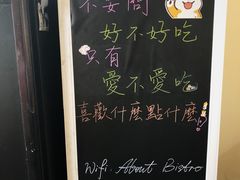 不要問
好不好吃
只有
愛不愛吃
喜歡什麼點什麼!
Wifi. About Bistro